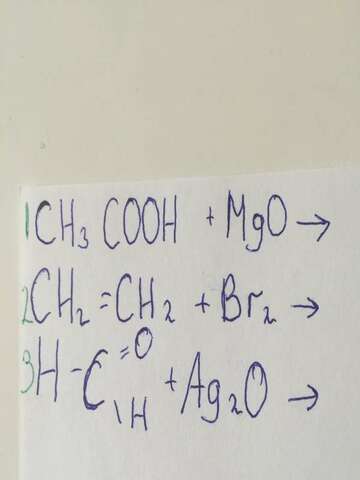 1 CH₃COOH + MgO →
2 CH₂=CH₂ + Br₂ →
3 H-C=O\H + Ag₂O →